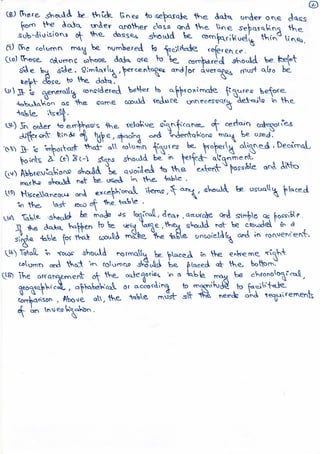 (8) There should be thick lines to separate the data under one class
from the data under another class and the lines separating the
sub-divisions of the classes should be comparatively thin lines.
(9) The column may be numbered to facilitate reference.
(10) Those columns whose data are to be compared should be kept
side by side. Similarly, percentages and/or averages must also be
kept close to the data.
(11) It is generally considered better to approximate figures before
tabulation as the same would reduce unnecessary details in the
table itself.
(12) In order to emphasis the relative significance of certain categories
different kinds of type, spacing and indentations may be used.
(13) It is important that all column figures be properly aligned. Decimal
points & (+) & (-) signs should be in perfect alignment.
(14) Abbreviations should be avoided to the extent possible and ditto
marks should not be used in the table.
(15) Miscellaneous and exceptional items, if any, should be usually placed
in the last row of the table.
(16) Table should be made as logical, clear, accurate and simple as possible.
If the data happen to be very large, they should not be crowded in a
single table for that would make the table unwieldy and in convenient.
(17) Total in rows should normally be placed in the extreme right
column and that in columns should be placed at the bottom.
(18) The arrangement of the categories in a table may be chronological,
geographical, alphabetical or according to magnitude to facilitate
comparison. Above all, the table must sit the needs and requirements
of an investigation.